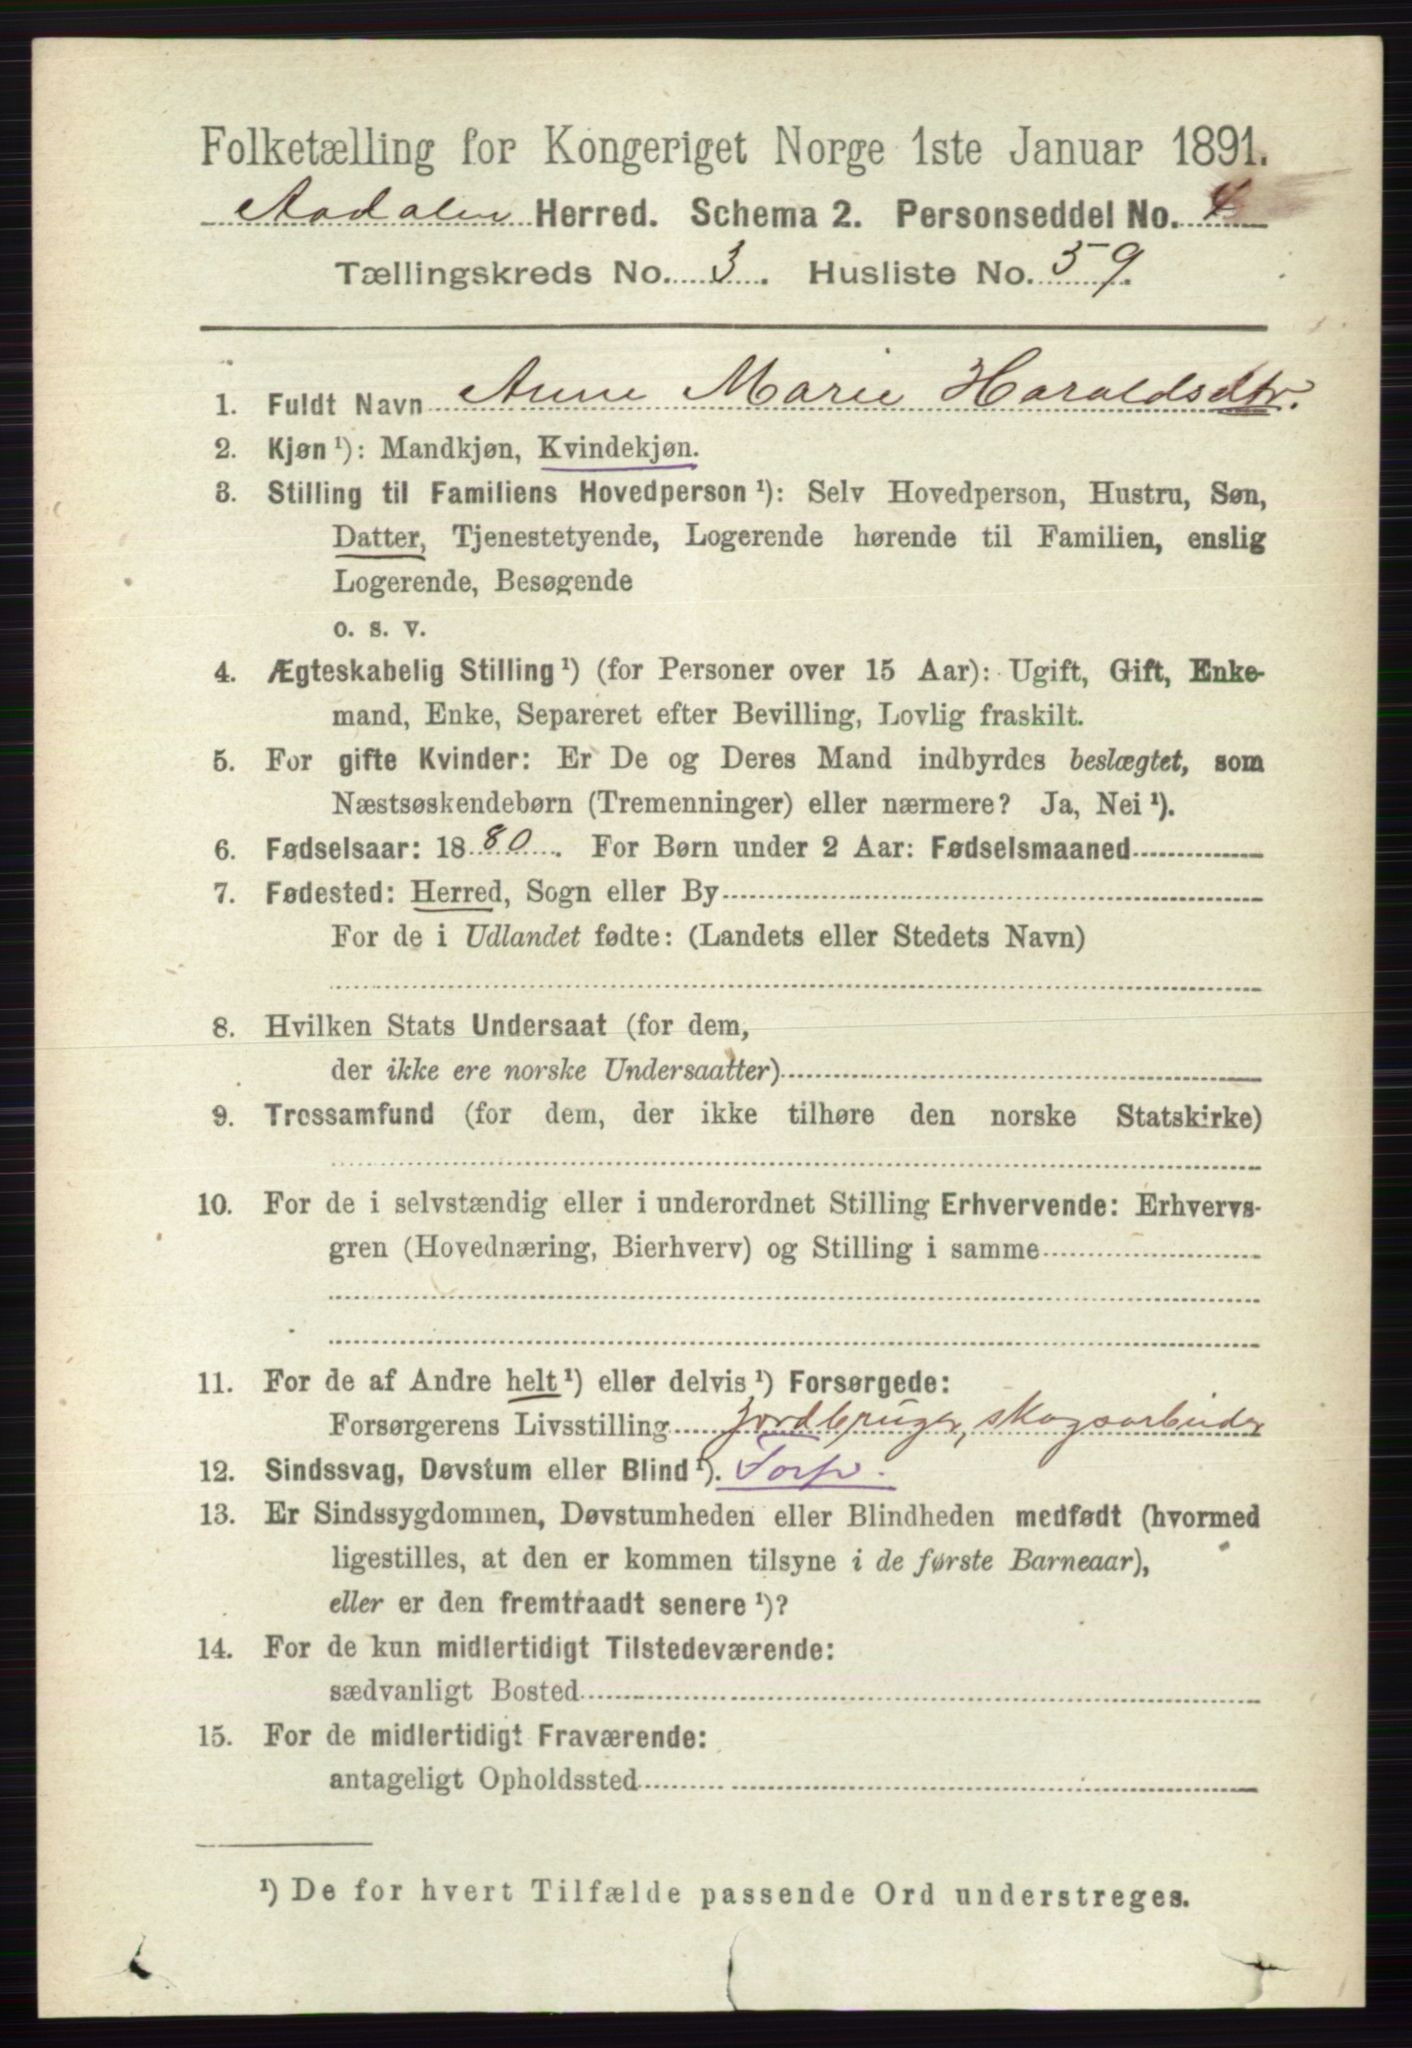 Folketælling for Kongeriget Norge 1ste Januar 1891.
Aadalen Herred. Schema 2. Personseddel No. 4
Tællingskreds No. 3. Husliste No. 59.
1. Fuldt Navn Anne Marie Haraldsdtr.
2. Kjøn ¹): Mandkjøn, Kvindekjøn.
3. Stilling til Familiens Hovedperson ¹): Selv Hovedperson, Hustru, Søn,
Datter, Tjenestetyende, Logerende hørende til Familien, enslig
Logerende, Besøgende
o. s. v.
4. Ægteskabelig Stilling ¹) (for Personer over 15 Aar): Ugift, Gift, Enke-
mand, Enke, Separeret efter Bevilling, Lovlig fraskilt.
5. For gifte Kvinder: Er De og Deres Mand indbyrdes beslægtet, som
Næstsøskendebørn (Tremenninger) eller nærmere? Ja, Nei ¹).
6. Fødselsaar: 1880. For Børn under 2 Aar: Fødselsmaaned
7. Fødested: Herred, Sogn eller By
For de i Udlandet fødte: (Landets eller Stedets Navn)
8. Hvilken Stats Undersaat (for dem,
der ikke ere norske Undersaatter)
9. Trossamfund (for dem, der ikke tilhøre den norske Statskirke)
10. For de i selvstændig eller i underordnet Stilling Erhvervende: Erhvervs-
gren (Hovednæring, Bierhverv) og Stilling i samme
11. For de af Andre helt ¹) eller delvis ¹) Forsørgede:
Forsørgerens Livsstilling Jordbruger, skogsarbeider
12. Sindssvag, Døvstum eller Blind ¹). Forp.
13. Er Sindssygdommen, Døvstumheden eller Blindheden medfødt (hvormed
ligestilles, at den er kommen tilsyne i de første Barneaar),
eller er den fremtraadt senere ¹)?
14. For de kun midlertidigt Tilstedeværende:
sædvanligt Bosted
15. For de midlertidigt Fraværende:
antageligt Opholdssted
¹) De for hvert Tilfælde passende Ord understreges.